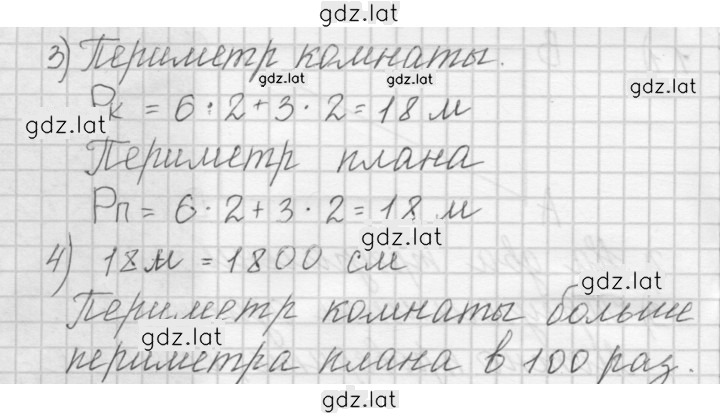 gdz.lat
3) Периметр комнаты.
gdz.lat gdz.lat gdz.lat
Pк = 6 · 2 + 3 · 2 = 18 м
gdz.lat
Периметр плана
Pп = 6 · 2 + 3 · 2 = 18 м
gdz.lat
4) 18 м = 1800 см
gdz.lat
Периметр комнаты больше
gdz.lat
периметра плана в 100 раз.
gdz.lat